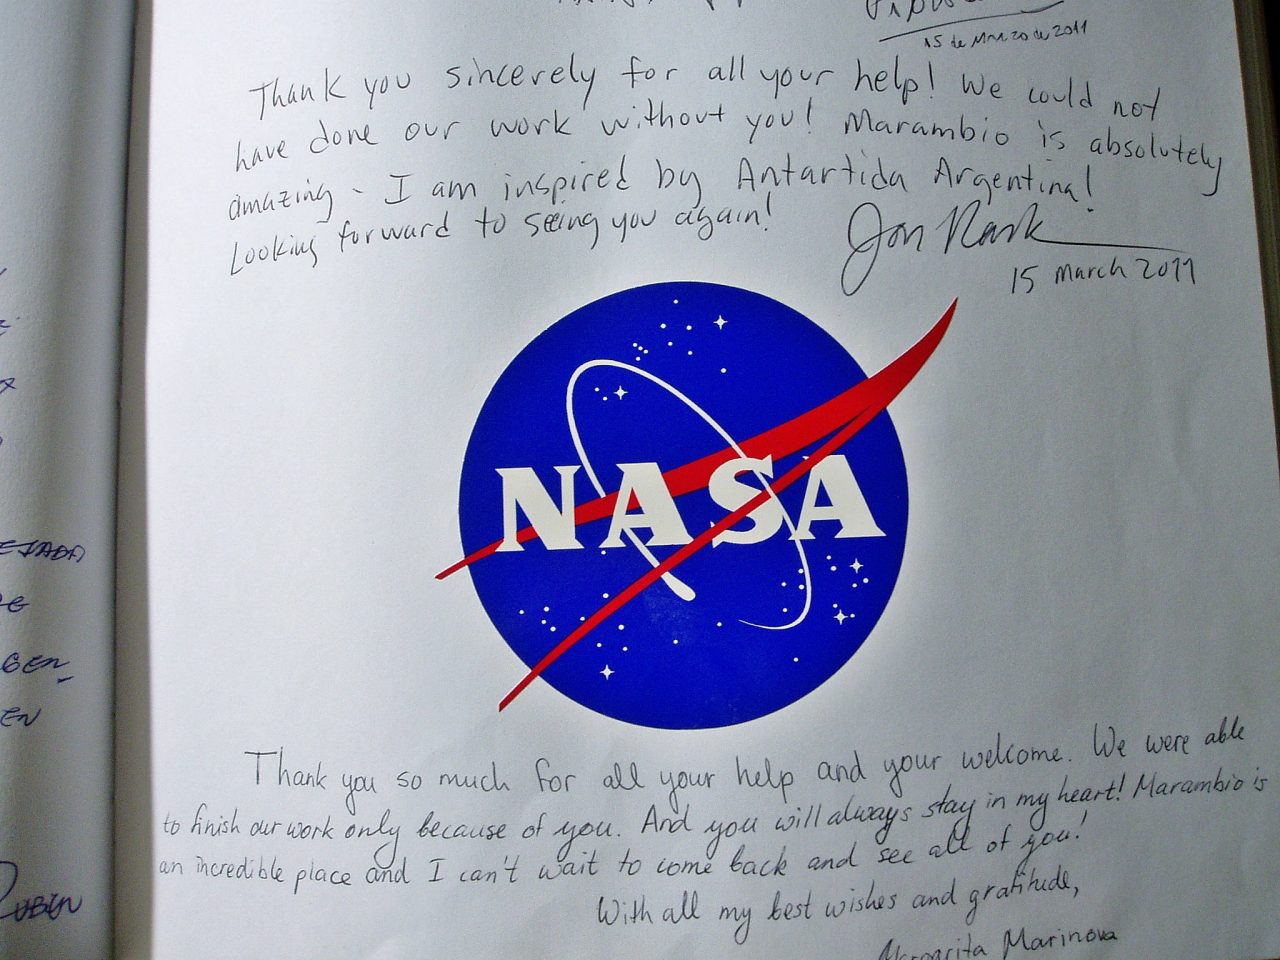 15 de Marzo de 2011
Thank you sincerely for all your help! We could not
have done our work without you! Marambio is absolutely
amazing - I am inspired by Antartida Argentina!
Looking forward to seeing you again!
Jon Rask
15 March 2011
NASA
Thank you so much for all your help and your welcome. We were able
to finish our work only because of you. And you will always stay in my heart! Marambio is
an incredible place and I can't wait to come back and see all of you!
With all my best wishes and gratitude,
Margarita Marinova